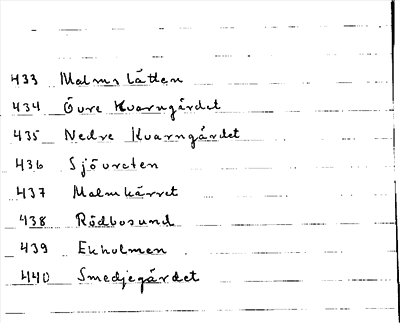 433 Malmslätten
434 Övre Kvarngärdet
435 Nedre Kvarngärdet
436 Sjövreten
437 Malmkärret
438 Rödbosund
439 Ekholmen
440 Smedjegärdet